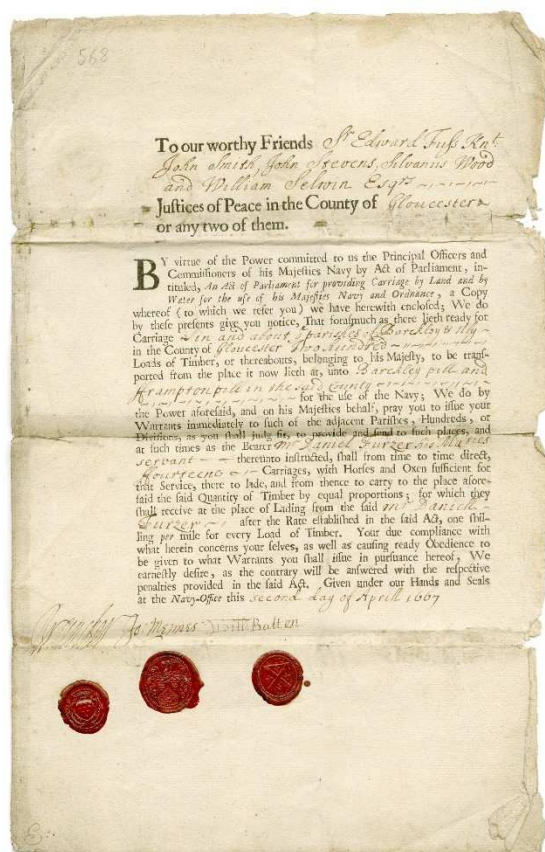 568
To our worthy Friends Sr. Edward Fuss Knt.
John Smith, John Stevens, Silvanus Wood
and William Selwin Esqrs
Justices of Peace in the County of Gloucester
or any two of them.
BY virtue of the Power committed to us the Principal Officers and
Commissioners of his Majesties Navy by Act of Parliament, in-
tituled, An Act of Parliament for providing Carriage by Land and by
Water for the use of his Majesties Navy and Ordnance, a Copy
whereof (to which we refer you) we have herewith enclosed; We do
by these presents give you notice, That forasmuch as there lieth ready for
Carriage in and about ye parishes of Barckley &
in the County of Gloucester Two hundred
Loads of Timber, or thereabouts, belonging to his Majesty, to be trans-
ported from the place it now lieth at, unto Barckley pill and
Frampton pill in the sayd County
for the use of the Navy; We do by
the Power aforesaid, and on his Majesties behalf, pray you to issue your
Warrants immediately to such of the adjacent Parishes, Hundreds, or
Divisions, as you shall judg fit, to provide and send to such places, and
at such times as the Bearer Mr Daniel Furzer his Maties
servant thereunto instructed, shall from time to time direct,
ffourteene Carriages, with Horses and Oxen sufficient for
that Service, there to lade, and from thence to carry to the place afore-
said the said Quantity of Timber by equal proportions; for which they
shall receive at the place of Lading from the said Mr Daniell
Furzer after the Rate established in the said Act, one shil-
ling per mile for every Load of Timber. Your due compliance with
what herein concerns your selves, as well as causing ready Obedience to
be given to what Warrants you shall issue in pursuance hereof, We
earnestly desire, as the contrary will be answered with the respective
penalties provided in the said Act. Given under our Hands and Seals
at the Navy-Office this second day of Aprill 1667
Jo Mennes Batten